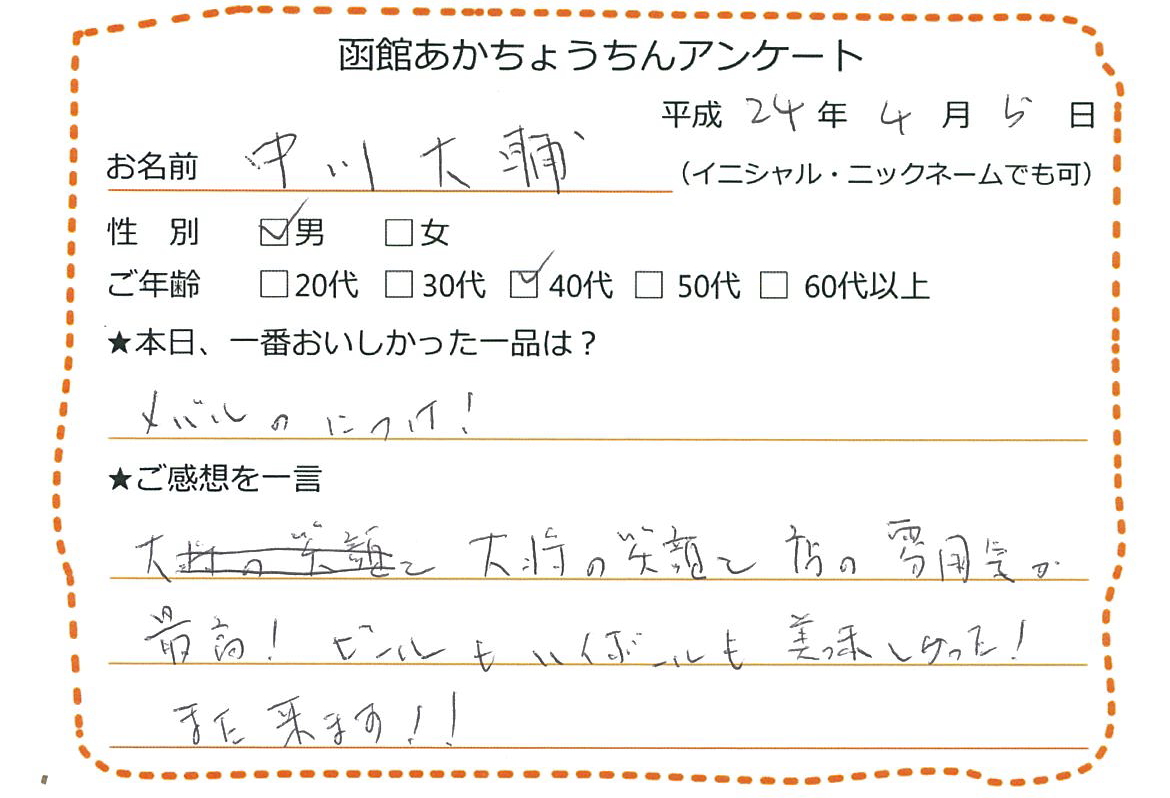 函館あかちょうちんアンケート
平成 24 年 4 月 5 日
お名前 中川 大輔 (イニシャル・ニックネームでも可)
性 別 □男 □女
ご年齢 □20代 □30代 □40代 □50代 □ 60代以上
★本日、一番おいしかった一品は？
メバルの につけ!
★ご感想を一言
大将の笑顔と 大将の笑顔と 店の雰囲気が
最高! ビールもハイボールも 美味しかった!
また来ます!!